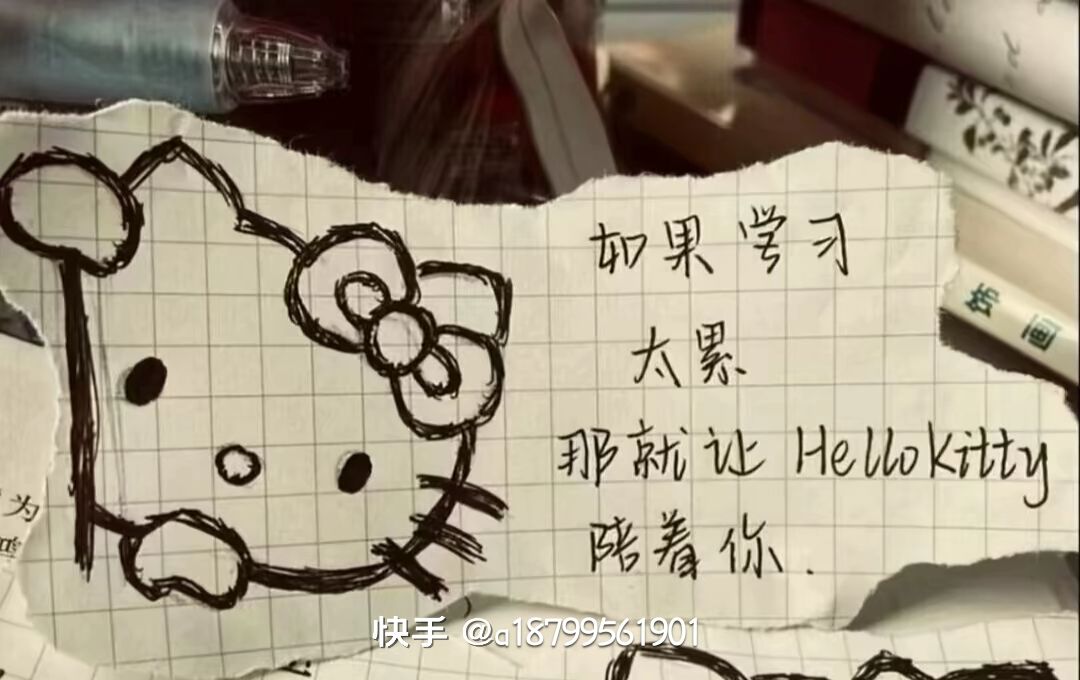 如果学习
太累
那就让Hellokitty
陪着你.
绘画
为
快手 @a18799561901